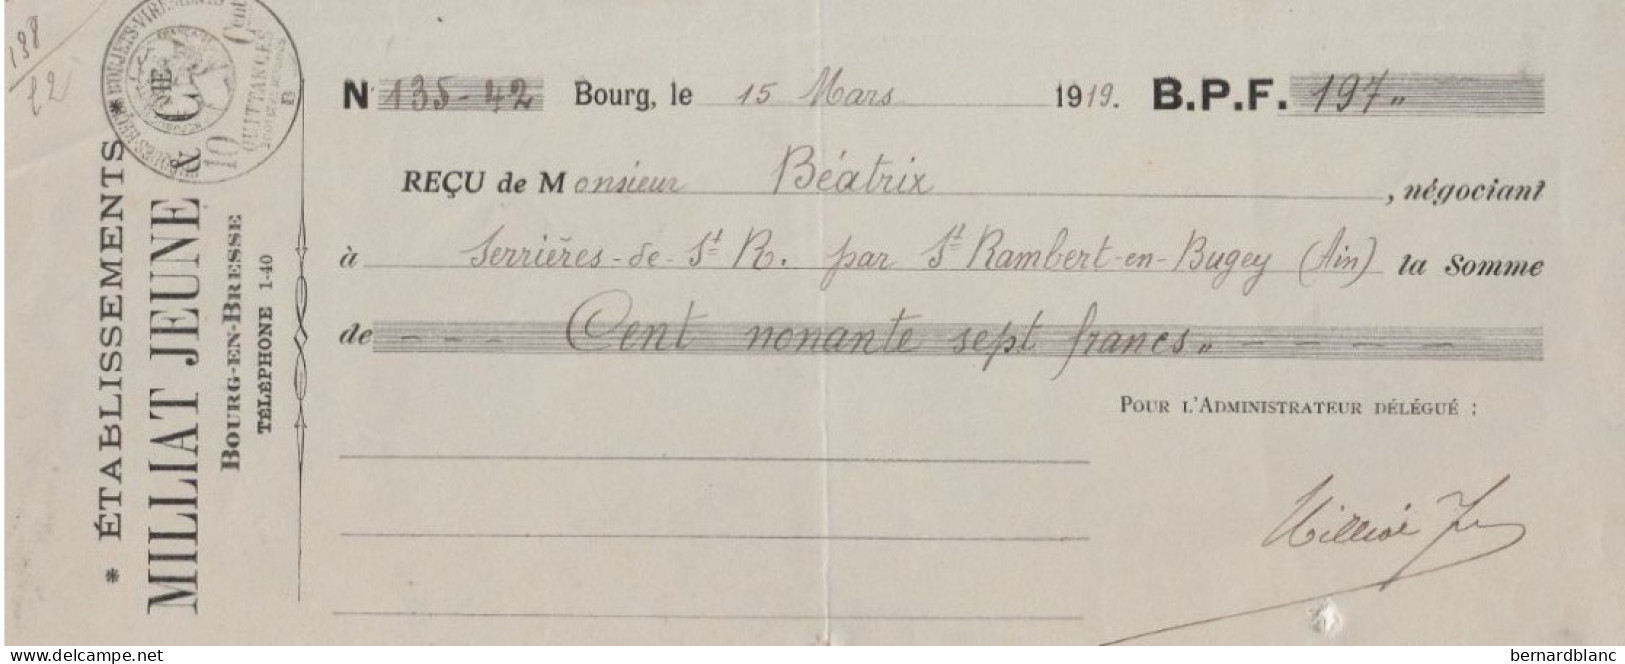 198
22
REÇUS-CHÈQUES-REÇUS-OBJETS-VIREMENTS
10 Cent
QUITTANCES
* ÉTABLISSEMENTS
MILLIAT JEUNE & CIE
BOURG-EN-BRESSE
TÉLÉPHONE 1-40
N° 135-42 Bourg, le 15 Mars 1919. B.P.F. 197 "
REÇU de Monsieur Béatrix, négociant
à Serrières-de-St R. par St Rambert-en-Bugey (Ain) la Somme
de - - - Cent nonante sept francs " - - - -
POUR L'ADMINISTRATEUR DÉLÉGUÉ :
Milliat Je
www.delcampe.net
bernardblanc